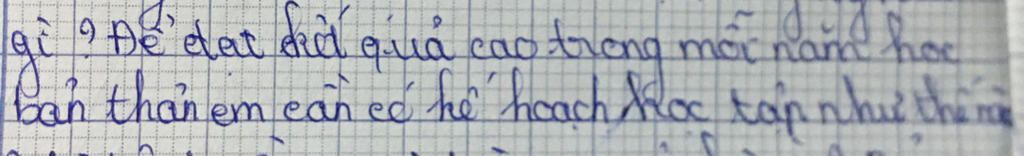 gì? Để đạt kết quả cao trong mỗi năm học
bản thân em cần có kế hoạch học tập như thế nào